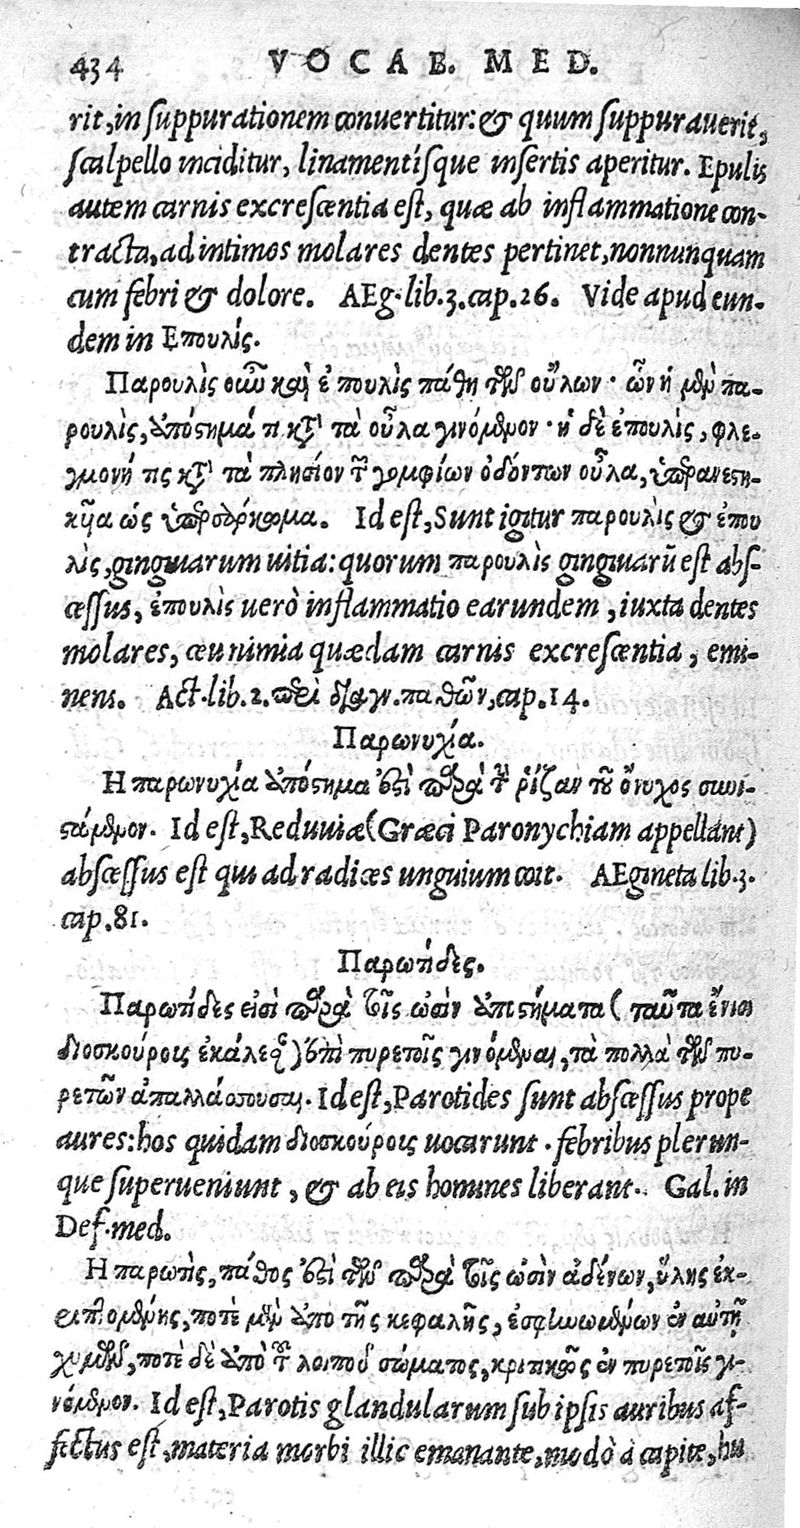 434 VOCAB. MED.
rit, in suppurationem conuertitur: & quum suppurauerit,
scalpello inciditur, linamentísque insertis aperitur. Epulis
autem carnis excrescentia est, quæ ab inflammatione con-
tracta, ad intimos molares dentes pertinet, nonnunquam
cum febri & dolore. AEg. lib.3. cap.26. Vide apud eun-
dem in Επουλίς.
Παρουλὶς οιῶ καὶ ἐπουλὶς πάθη τῶν οὔλων· ὧν ἡ μὲν πα-
ρουλὶς, ἀπόστημά τι κατὰ τὰ οὖλα γινόμενον· ἡ δὲ ἐπουλὶς, φλε-
γμονή τις κατὰ τὰ πλησίον τῶν γομφίων ὀδόντων οὖλα, ὑπερανεστη-
κῆα ὡς ὑπερσάρκωμα. Id est, Sunt igitur παρουλὶς & ἐπου
λὶς, gingiuarum uitia: quorum παρουλὶς gingiuarū est abs-
cessus, ἐπουλὶς uerò inflammatio earundem, iuxta dentes
molares, ceu nimia quædam carnis excrescentia, emi-
nens. Act. lib.2. περὶ διαγν. παθῶν, cap.14.
Παρωνυχία.
Η παρωνυχία ἀπόστημα ἐστὶ παρὰ τὴν ῥίζαν τοῦ ὄνυχος συνι-
στάμενον. Id est, Reduuiæ (Græci Paronychiam appellant)
abscessus est qui ad radices unguium coit. AEgineta lib.3.
cap.81.
Παρωτίδες.
Παρωτίδες εἰσὶ παρὰ τοῖς ὠσὶν ἀποστήματα (ταῦτα ἔνιοι
διοσκούροις ἐκάλεσαν) ἐπὶ πυρετοῖς γινόμεναι, τὰ πολλὰ τῶν πυ-
ρετῶν ἀπαλλάσσουσαι. Id est, Parotides sunt abscessus prope
aures: hos quidam διοσκούροις uocarunt. febribus plerun-
que superueniunt, & ab eis homines liberant. Gal. in
Def. med.
Η παρωτὶς, πάθος ἐστὶ τῶν παρὰ τοῖς ὠσὶν ἀδένων, ὕλης ἐκ-
ποτὲ μὲν ἀπὸ τῆς κεφαλῆς, ἐν αὐτῇ
χυμῶν, ποτὲ δὲ ἀπὸ τοῦ λοιποῦ σώματος, κριτικῶς ἐν πυρετοῖς γι-
νόμενον. Id est, Parotis glandularum sub ipsis auribus af-
fectus est, materia morbi illic emanante, modò à capite, hu